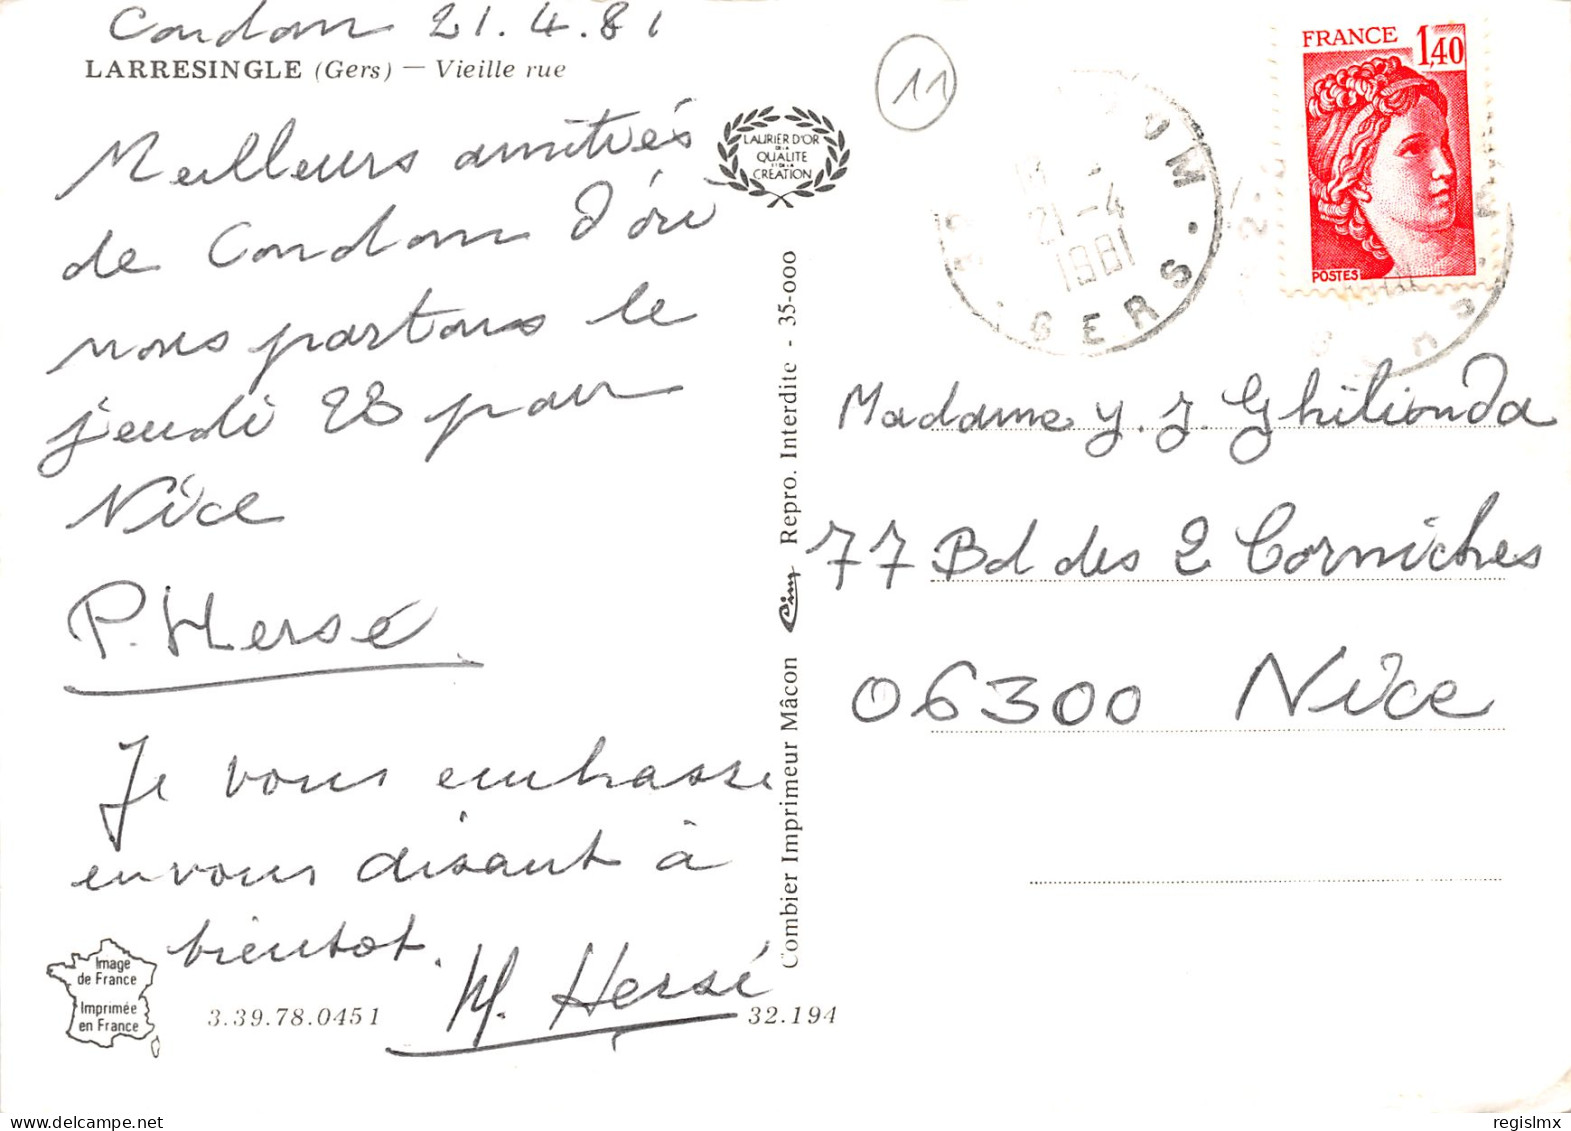 Condom 21.4.81
LARRESINGLE (Gers) — Vieille rue
Meilleurs amitiés
de Condom d'où
nous partons le
jeudi 23 pour
Nice
P. Hersé
Je vous embrasse
en vous disant à
bientot.
M. Hersé
Image
de France
Imprimée
en France
3.39.78.0451
32.194
LAURIER D'OR
DE LA
QUALITE
ET DE LA
CREATION
Combier Imprimeur Mâcon Cim Repro. Interdite - 35-000
11
21-4
1981
GERS
FRANCE 1,40
POSTES
Madame Y. J. Ghilionda
77 Bd des 2 Corniches
06300 Nice
delcampe.net
regislmx